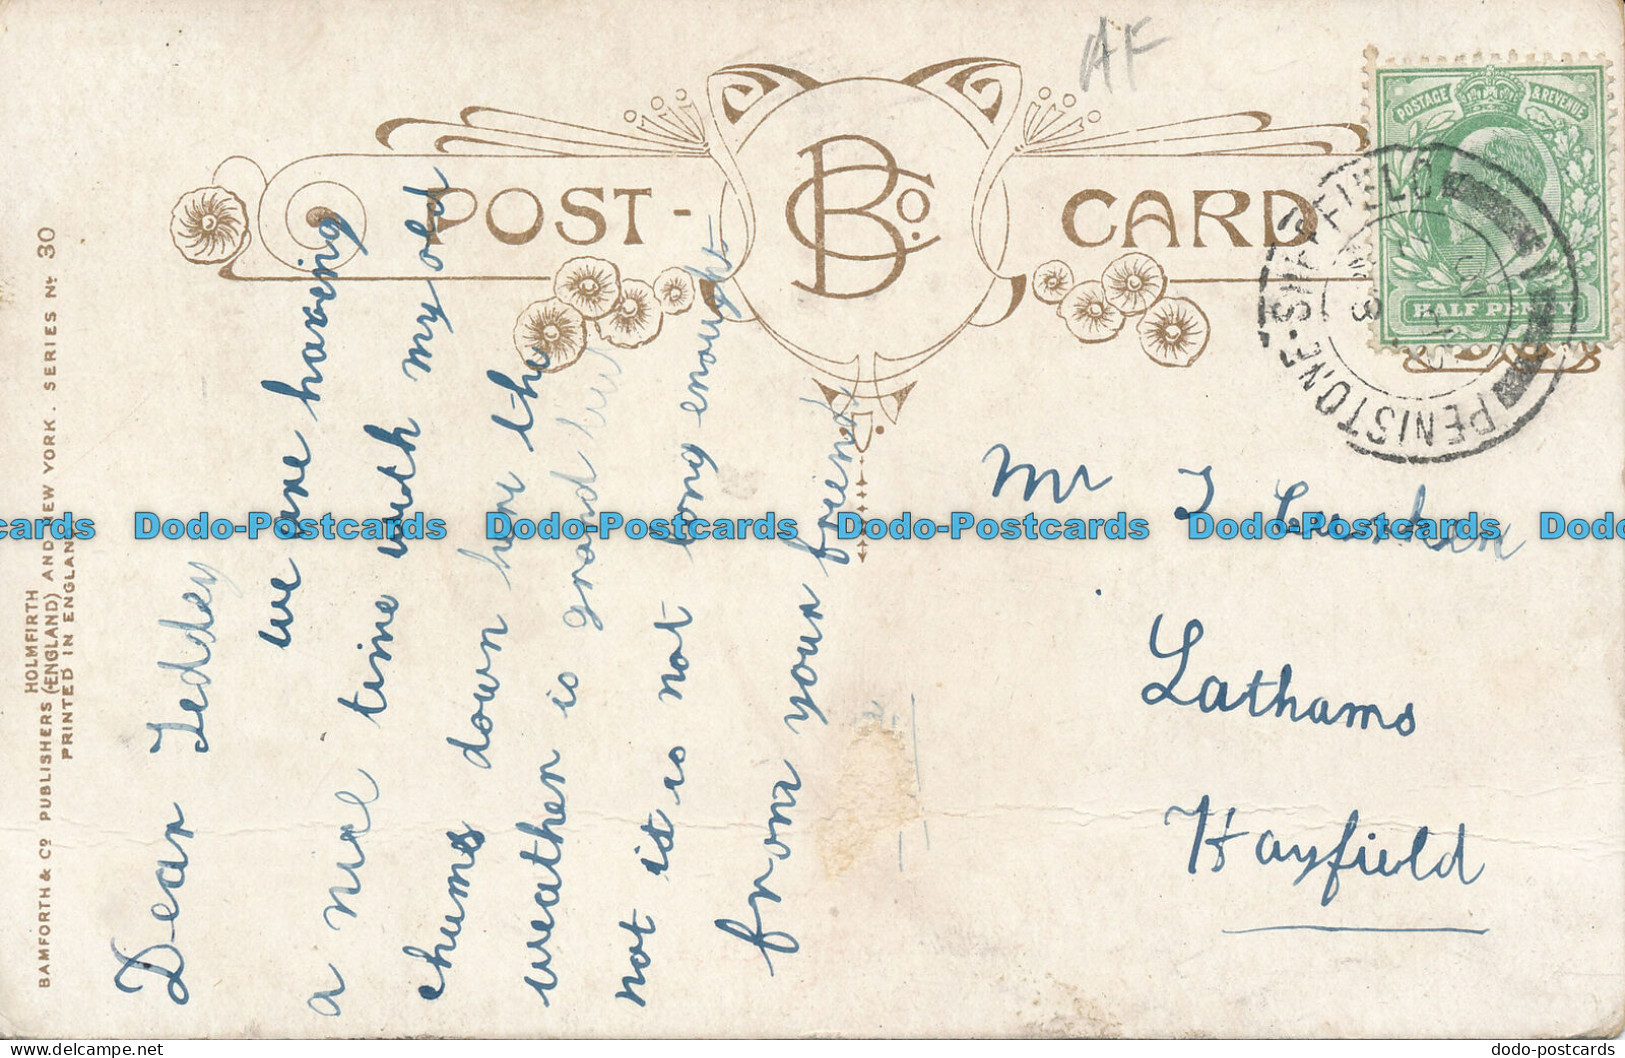 AF
POST-CARD
BCo.
POSTAGE & REVENUE
HALF PENNY
PENISTONE·SHEFFIELD
BAMFORTH & Co PUBLISHERS (ENGLAND) AND NEW YORK. SERIES No 30
HOLMFIRTH
PRINTED IN ENGLAND
Dear Teddey
we are having
a nice time with my old
chums down here the
weather is grand but
not it is not long enough
from your friend
Mr
Lathams
Hayfield
Dodo-Postcards Dodo-Postcards Dodo-Postcards Dodo-Postcards
Dodo-Postcards.com
dodo-postcards.com